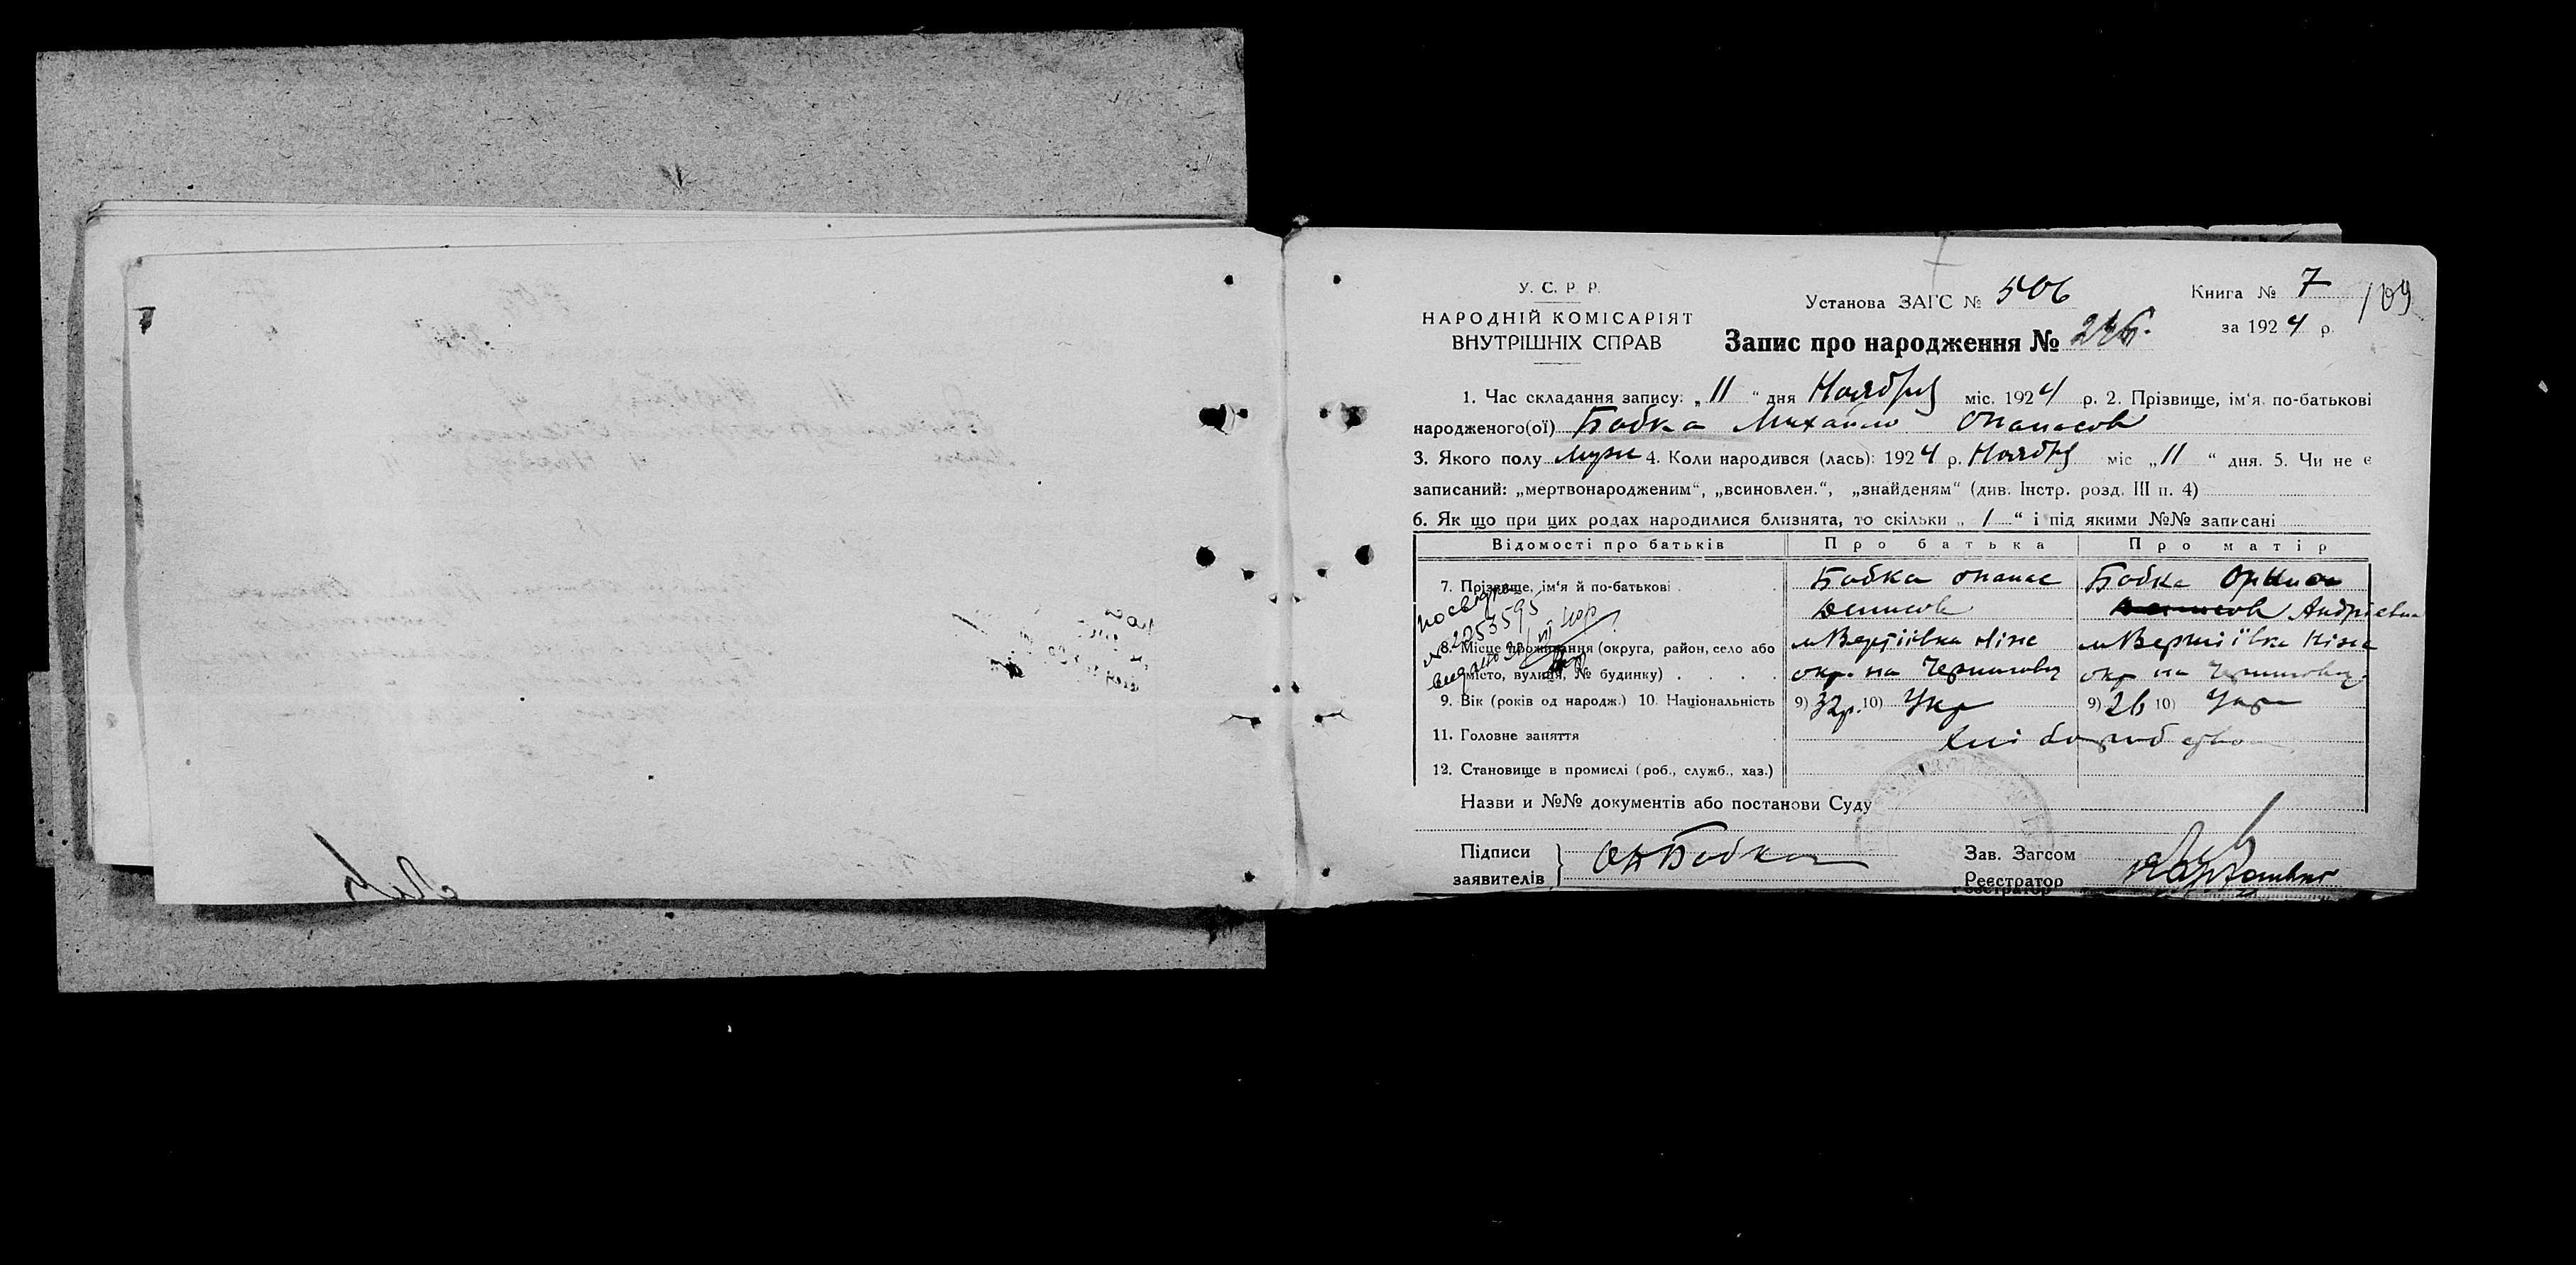 У. С. Р. Р.
НАРОДНІЙ КОМІСАРІЯТ
ВНУТРІШНІХ СПРАВ
Установа ЗАГС № 506
Книга № 7
109
Запис про народження №
за 1924 р.
1. Час складання запису: „11“ дня Ноября міс. 1924 р. 2. Прізвище, ім‘я, по-батькові
народженого(ої) Бобка Михайло Опанасов
3. Якого полу муж 4. Коли народився (лась): 1924 р. Ноября міс „11“ дня. 5. Чи не є
записаний: „мертвонародженим“, „всиновлен.“, „знайденям“ (див. Інстр. розд. III п. 4)
6. Як що при цих родах народилися близнята, то скільки „1“ і під якими №№ записані
Відомості про батьків Про батька Про матір
7. Прізвище, ім‘я й по-батькові Бобка Опанас Бобка
Денисов Андріевна
8. Місце проживання (округа, район, село або м Вертіївка Ніже м Вертіївка Ніже
місто, вулиця, № будинку) окр. на окр на
9. Вік (років од народж.) 10. Національність 9) 32р. 10) Укр 9) 26 10) Укр
11. Головне заняття Хліборобство
12. Становище в промислі (роб., служб., хаз.)
Назви и №№ документів або постанови Суду
Підписи
заявителів
Бобка
Зав. Загсом
Реєстратор